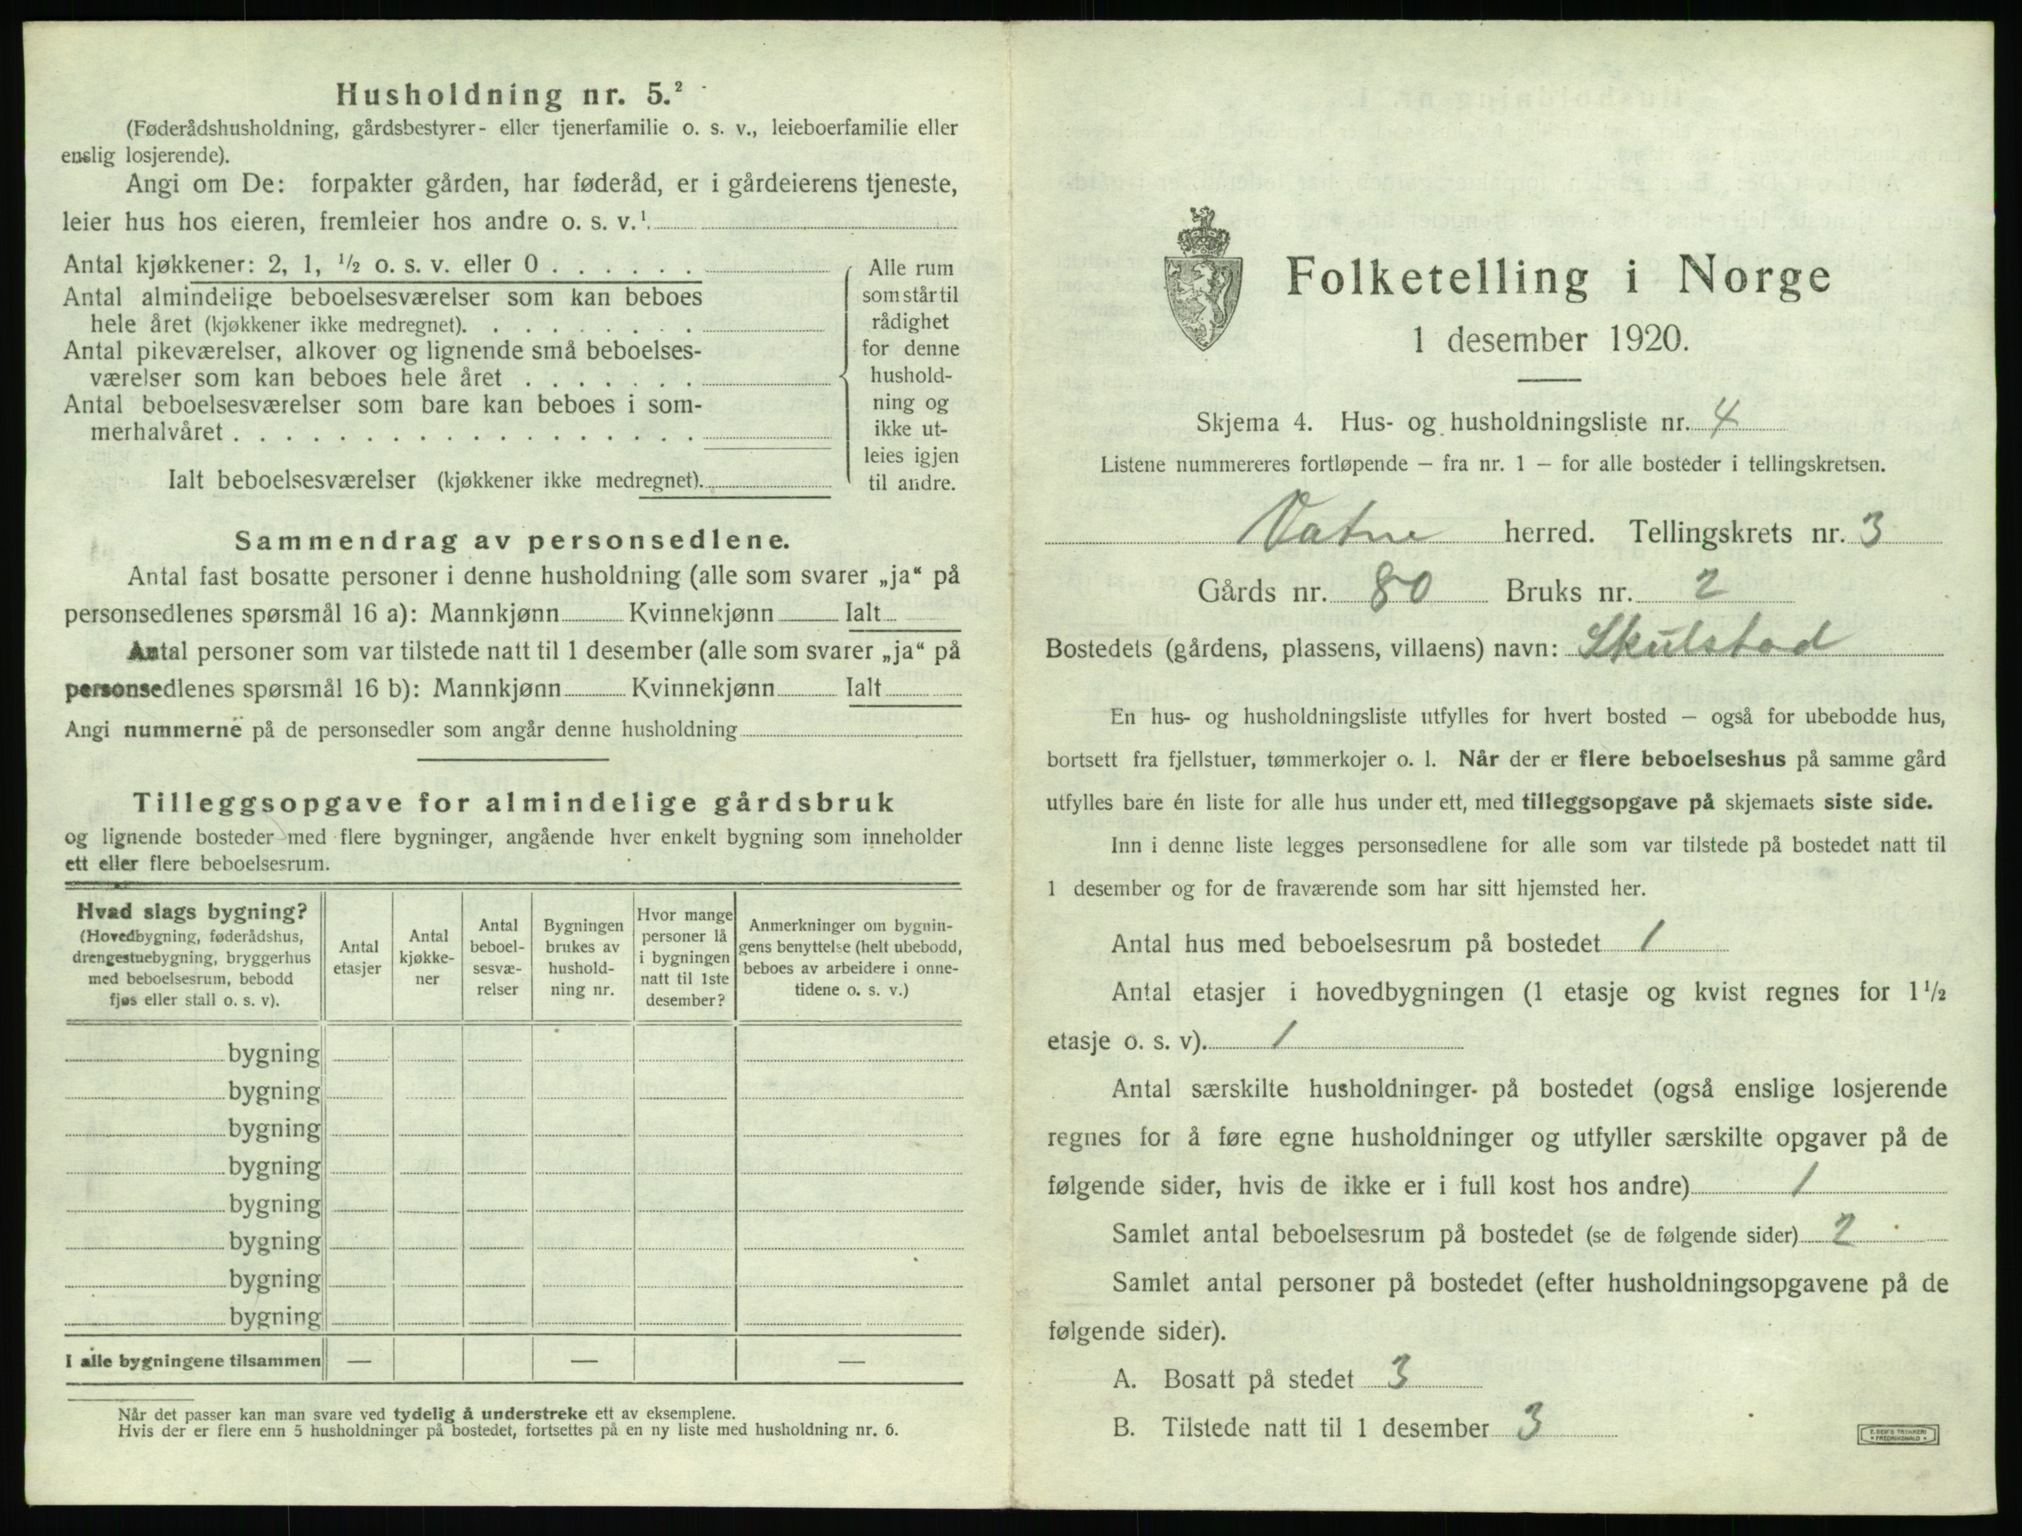 Husholdning nr. 5.²
(Føderådshusholdning, gårdsbestyrer- eller tjenerfamilie o. s. v., leieboerfamilie eller
enslig losjerende).
Angi om De: forpakter gården, har føderåd, er i gårdeierens tjeneste,
leier hus hos eieren, fremleier hos andre o. s. v.¹
Antal kjøkkener: 2, 1, ½ o. s. v. eller 0 . . . . . .
Antal almindelige beboelsesværelser som kan beboes
hele året (kjøkkener ikke medregnet). . . . . . . . .
Antal pikeværelser, alkover og lignende små beboelses-
værelser som kan beboes hele året . . . . . . .
Antal beboelsesværelser som bare kan beboes i som-
merhalvåret . . . . . . . . . . . . . . . . . .
Ialt beboelsesværelser (kjøkkener ikke medregnet).
Alle rum
som står til
rådighet
for denne
hushold-
ning og
ikke ut-
leies igjen
til andre.
Sammendrag av personsedlene.
Antal fast bosatte personer i denne husholdning (alle som svarer „ja“ på
personsedlenes spørsmål 16 a): Mannkjønn Kvinnekjønn Ialt
Antal personer som var tilstede natt til 1 desember (alle som svarer „ja“ på
personsedlenes spørsmål 16 b): Mannkjønn Kvinnekjønn Ialt
Angi nummerne på de personsedler som angår denne husholdning
Tilleggsopgave for almindelige gårdsbruk
og lignende bosteder med flere bygninger, angående hver enkelt bygning som inneholder
ett eller flere beboelsesrum.
Hvad slags bygning?
(Hovedbygning, føderådshus,
drengestuebygning, bryggerhus
med beboelsesrum, bebodd
fjøs eller stall o. s. v).
Antal
etasjer
Antal
kjøkke-
ner
Antal
beboel-
sesvæ-
relser
Bygningen
brukes av
hushold-
ning nr.
Hvor mange
personer lå
i bygningen
natt til 1ste
desember?
Anmerkninger om bygnin-
gens benyttelse (helt ubebodd,
beboes av arbeidere i onne-
tidene o. s. v.)
bygning
bygning
bygning
bygning
bygning
bygning
bygning
bygning
I alle bygningene tilsammen — — —
Når det passer kan man svare ved tydelig å understreke ett av eksemplene.
Hvis der er flere enn 5 husholdninger på bostedet, fortsettes på en ny liste med husholdning nr. 6.
Folketelling i Norge
1 desember 1920.
Skjema 4. Hus- og husholdningsliste nr. 4
Listene nummereres fortløpende — fra nr. 1 — for alle bosteder i tellingskretsen.
Vatne herred. Tellingskrets nr. 3
Gårds nr. 80 Bruks nr. 2
Bostedets (gårdens, plassens, villaens) navn: Skulstad
En hus- og husholdningsliste utfylles for hvert bosted — også for ubebodde hus,
bortsett fra fjellstuer, tømmerkojer o. l. Når der er flere beboelseshus på samme gård
utfylles bare én liste for alle hus under ett, med tilleggsopgave på skjemaets siste side.
Inn i denne liste legges personsedlene for alle som var tilstede på bostedet natt til
1 desember og for de fraværende som har sitt hjemsted her.
Antal hus med beboelsesrum på bostedet 1
Antal etasjer i hovedbygningen (1 etasje og kvist regnes for 1½
etasje o. s. v). 1
Antal særskilte husholdninger på bostedet (også enslige losjerende
regnes for å føre egne husholdninger og utfyller særskilte opgaver på de
følgende sider, hvis de ikke er i full kost hos andre) 1
Samlet antal beboelsesrum på bostedet (se de følgende sider) 2
Samlet antal personer på bostedet (efter husholdningsopgavene på de
følgende sider).
A. Bosatt på stedet 3
B. Tilstede natt til 1 desember 3